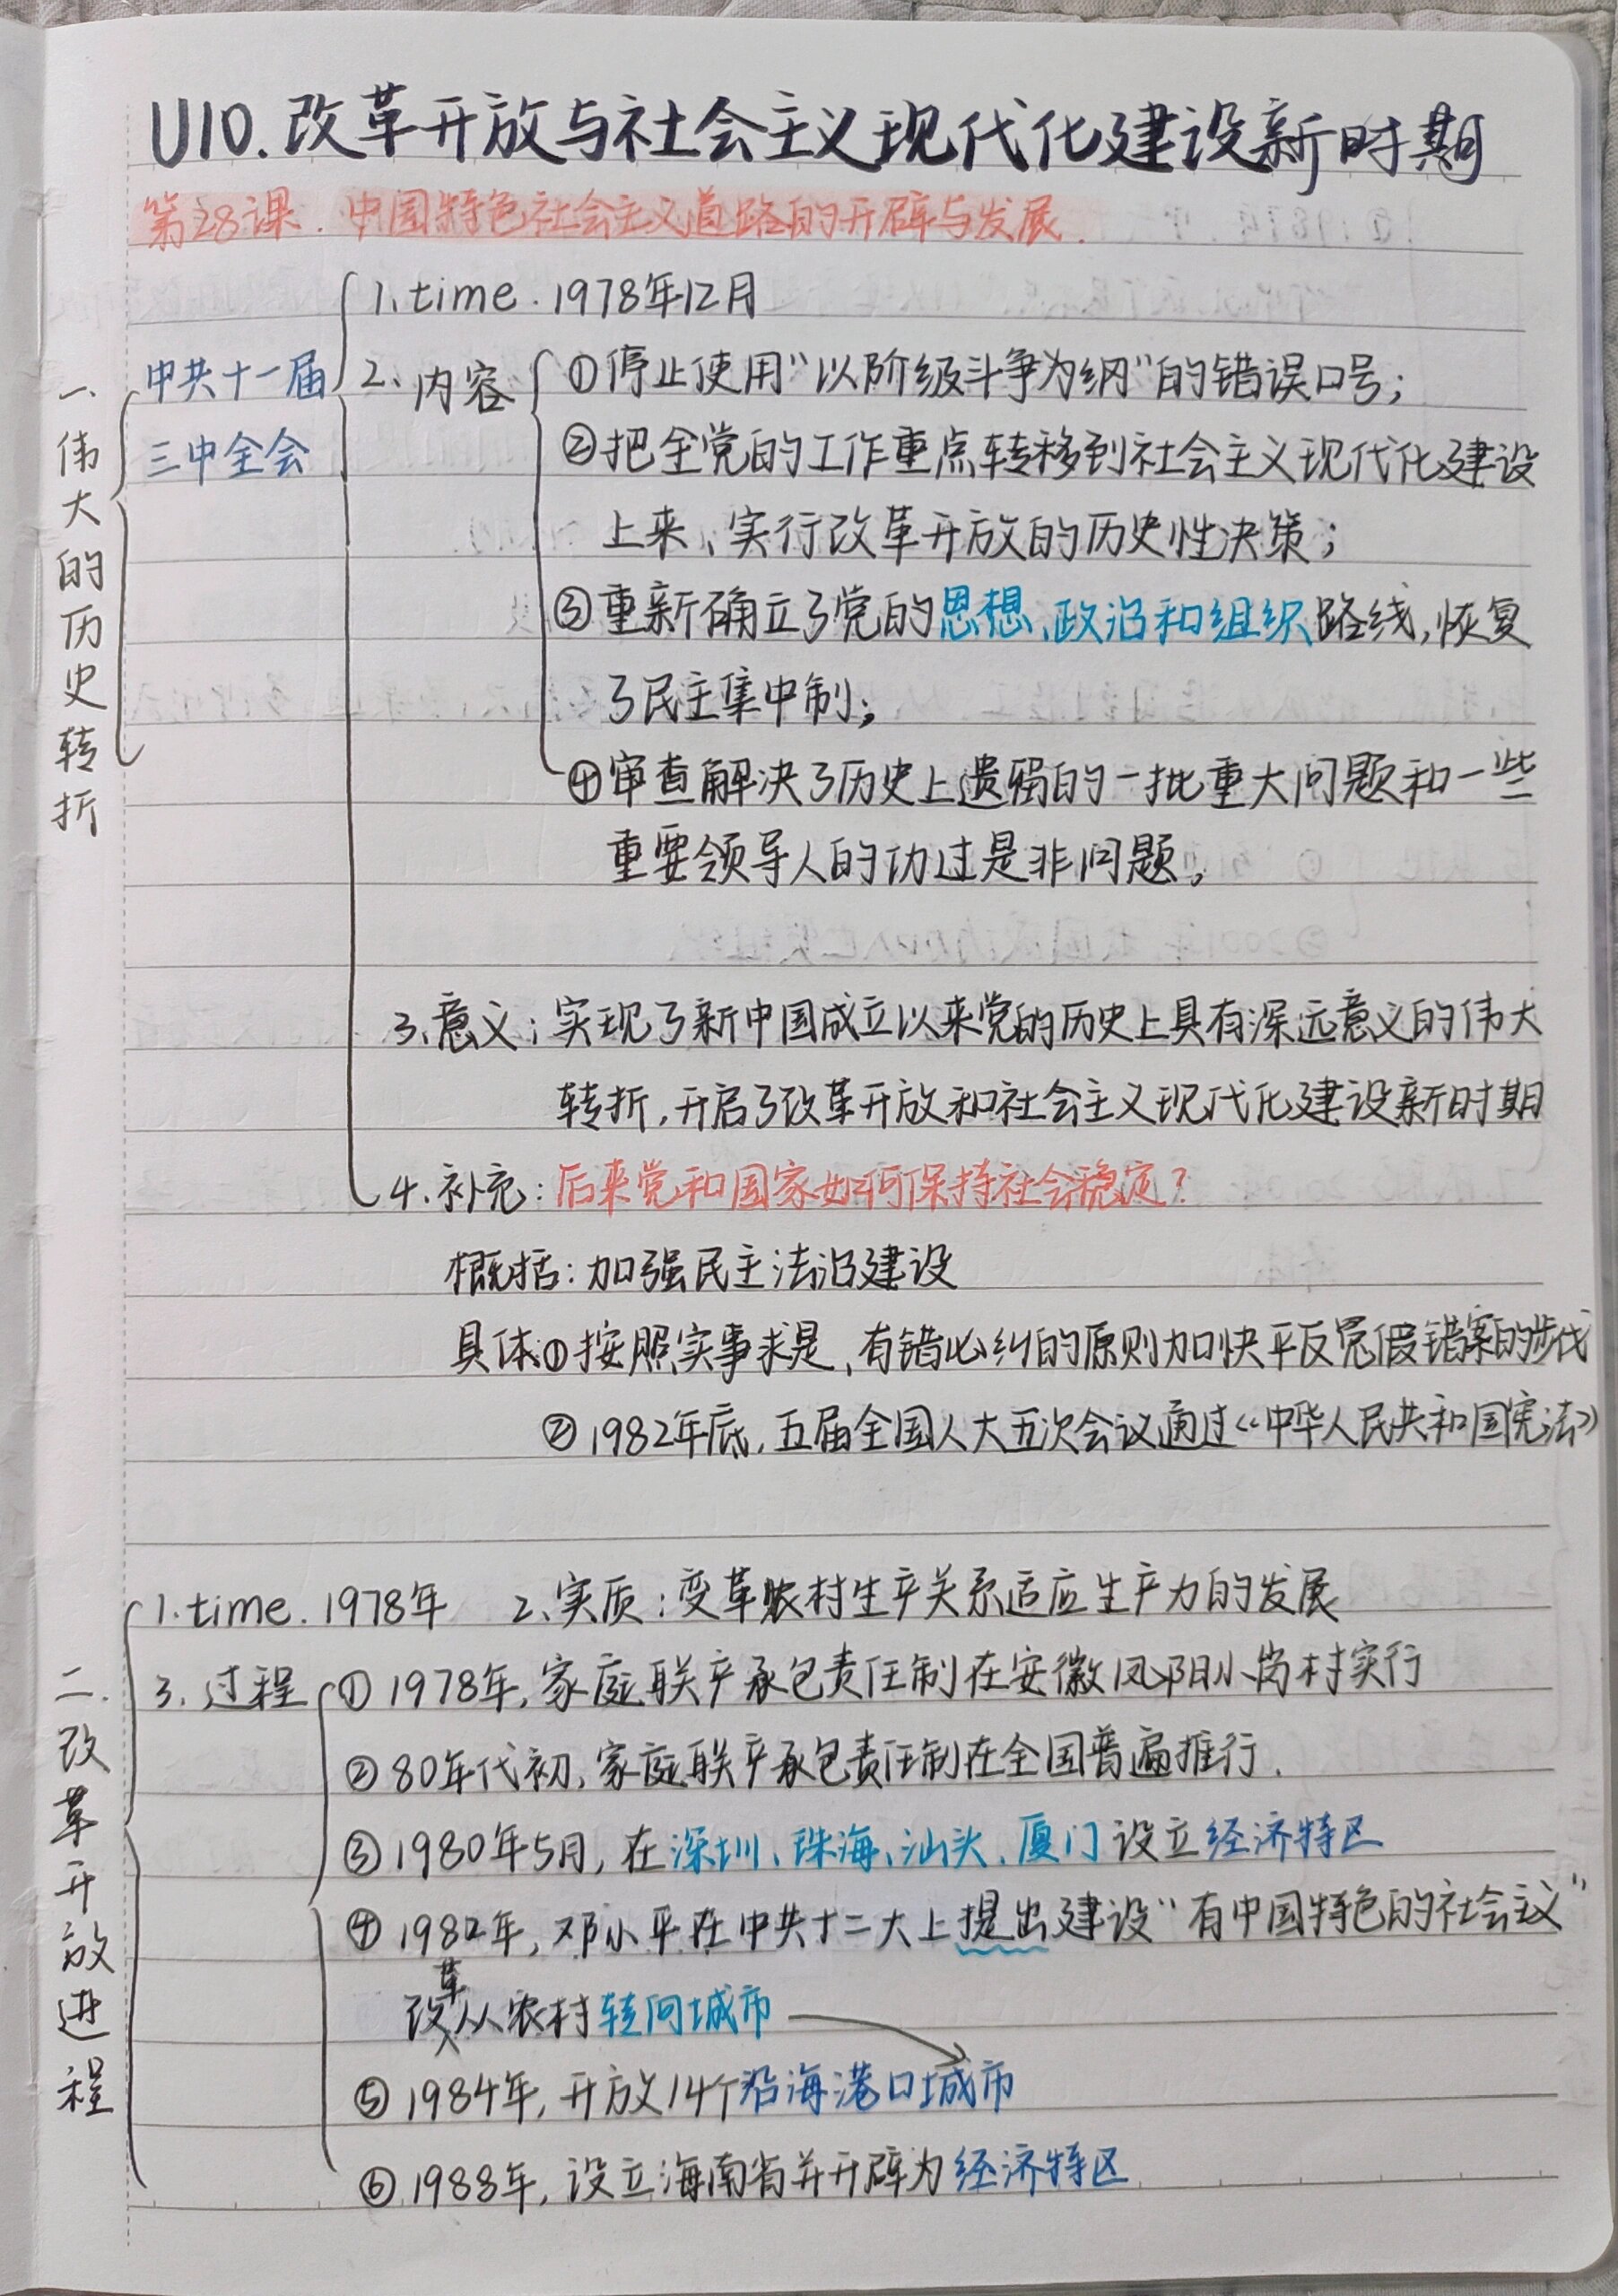 U10.改革开放与社会主义现代化建设新时期
第28课.中国特色社会主义道路的开辟与发展.
一、伟大的历史转折
中共十一届
三中全会
1.time.1978年12月
2、内容
①停止使用“以阶级斗争为纲”的错误口号;
②把全党的工作重点转移到社会主义现代化建设
上来、实行改革开放的历史性决策;
③重新确立了党的思想、政治和组织路线,恢复
了民主集中制;
④审查解决了历史上遗留的一批重大问题和一些
重要领导人的功过是非问题。
3、意义:实现了新中国成立以来党的历史上具有深远意义的伟大
转折,开启了改革开放和社会主义现代化建设新时期
4.补充:后来党和国家如何保持社会稳定?
概括:加强民主法治建设
具体:①按照实事求是、有错必纠的原则加快平反冤假错案的步伐
②1982年底,五届全国人大五次会议通过《中华人民共和国宪法》
二.改革开放进程
1.time.1978年 2、实质:变革农村生产关系适应生产力的发展
3.过程
①1978年,家庭联产承包责任制在安徽凤阳小岗村实行
②80年代初,家庭联产承包责任制在全国普遍推行.
③1980年5月,在深圳、珠海、汕头、厦门设立经济特区
④1982年,邓小平在中共十二大上提出建设“有中国特色的社会主义”
改革从农村转向城市
⑤1984年,开放14个沿海港口城市
⑥1988年,设立海南省并开辟为经济特区